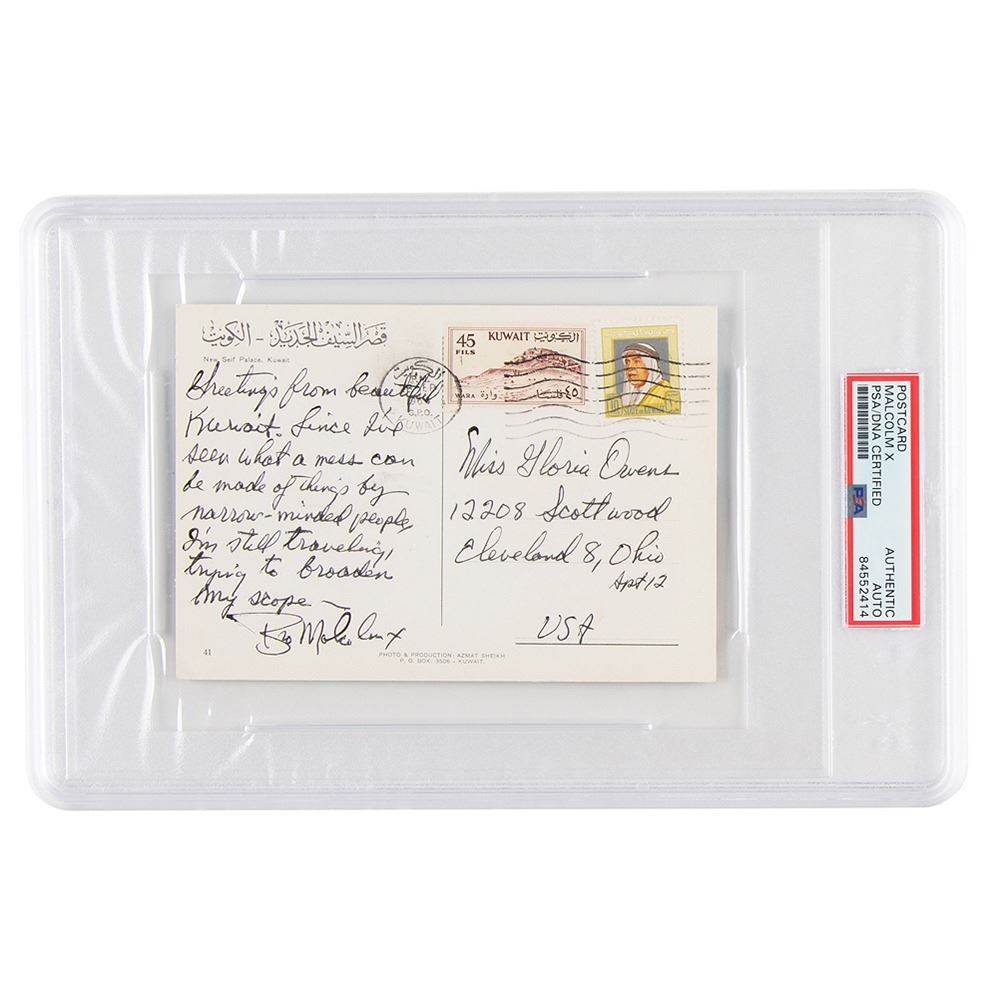 قصر السيف الجديد - الكويت
New Seif Palace, Kuwait
Greetings from beautiful
Kuwait. Since I've
seen what a mess can
be made of things by
narrow-minded people,
I'm still traveling,
trying to broaden
my scope —
Bro Malcolm X
41
PHOTO & PRODUCTION: AZMAT SHEIKH
P. O. BOX: 3506 - KUWAIT.
45 KUWAIT الكويت
FILS
WARA وارة ٤٥ فلسا
الكويت
G.P.O.
KUWAIT
STATE OF KUWAIT
Miss Gloria Owens
12208 Scottwood
Cleveland 8, Ohio
Apt 12
USA
POSTCARD
MALCOLM X
PSA/DNA CERTIFIED
PSA
AUTHENTIC
AUTO
84552414